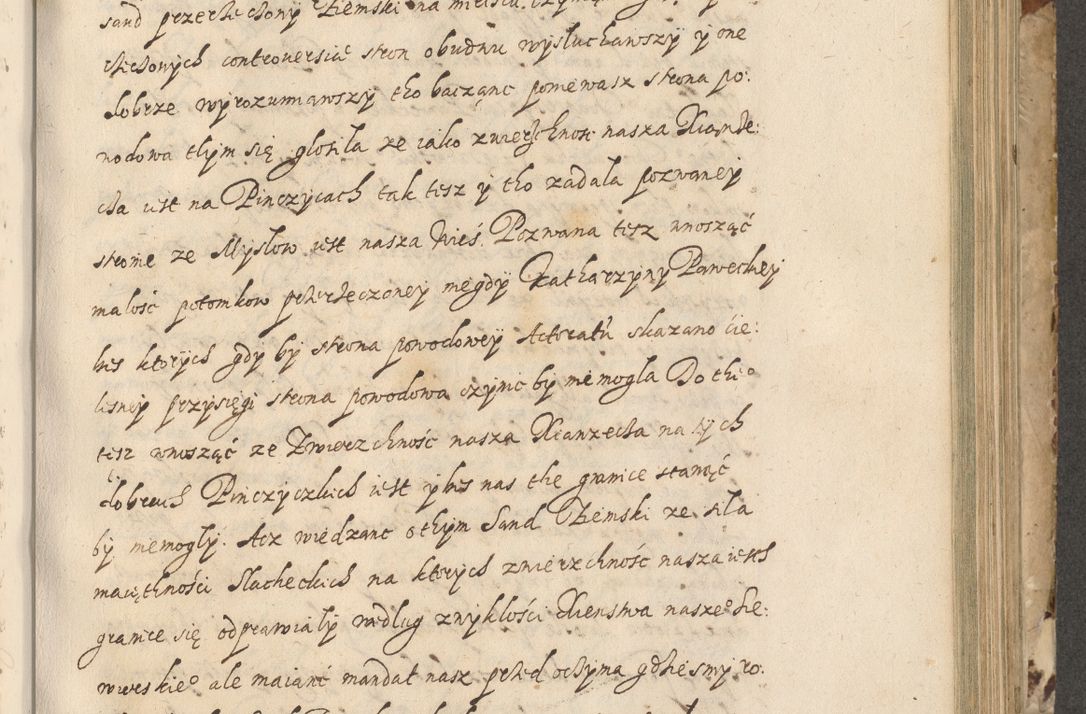 sand przerzeczony Ziemski na miejscu
rzeczonych controuersiá stron obudwu wysłuchawszy y one
dobrze wyrozumiawszy tho bacząnc poniewasz strona po:
wodowa thym się głosiła ze iako zwierzchnosc nasza Xiąnże:
cza iest na Pinczycach tak tesz y tho zadala pozwaney
stronie ze Mysłow iest nasza Wieś. Pozwana tesz wnosząć
małość potomkow przerzeczoney niegdy Katharzyny Paweckiey
bes ktorych gdy by strona powodowey Actoratú skazano cie:
lesney przysięgi strona powodowa czynic by nie mogla Do the°
tesz wnosząć ze Zwierzchność nasza Xianzecza na tych
dobrach Pinczyczkich iest y bes nas the granice stanąć
by niemogly. Acz wiedzanc o thym Sand Ziemski ze siła
maiętności Slacheckich na ktorych zwierzchność nasza iesth
granice się odprawiały według zwykłości Xienstwa nasze° Sie:
wierskie° ale maianc mandat nasz przed oczyma gdziesmy ro: